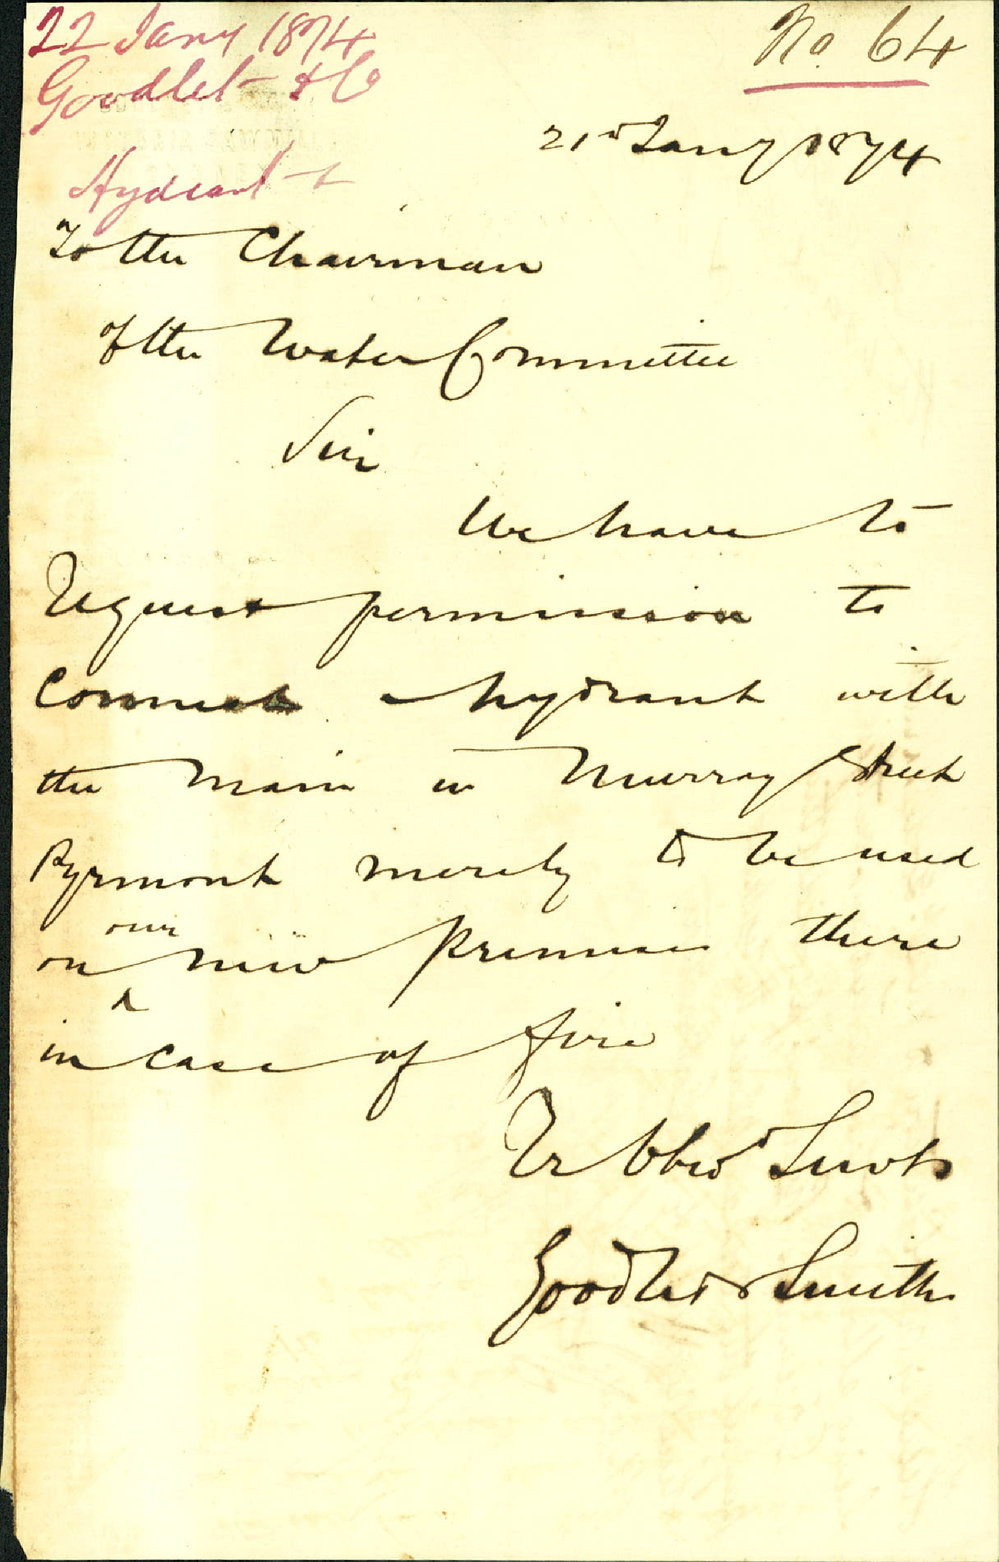 22 Jany 1874
Goodlet & Co
Hydrant
No. 64
21st Jany 1874
To the Chairman
of the Water Committee
Sir
We have to
request permission to
connect a hydrant with
the main in Murray Street
Pyrmont merely to be used
on our new premises there
in case of fire
Yr Obed Servts
Goodlet & Smith